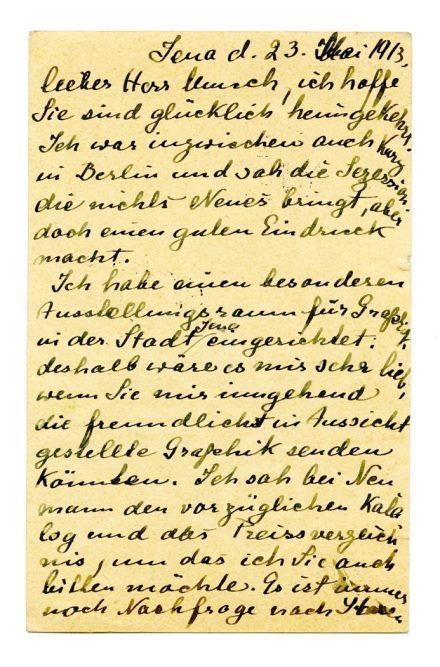 Jena d. 23. Mai 1913,
lieber Herr Munch, ich hoffe
Sie sind glücklich heimgekehrt.
Ich war inzwischen auch kurz
in Berlin und sah die Sezession,
die nichts Neues bringt, aber
doch einen guten Eindruck
macht.
Ich habe einen besonderen
Ausstellungsraum für Graphik
in der Stadt Jena eingerichtet.
deshalb wäre es mir sehr lieb,
wenn Sie mir umgehend
die freundlichst in Aussicht
gestellte Graphik senden
könnten. Ich sah bei Neu
mann den vorzüglichen Kata
log und das Preissverzeich
nis, um das ich Sie auch
bitten möchte. Es ist immer
noch Nachfrage nach Ihren